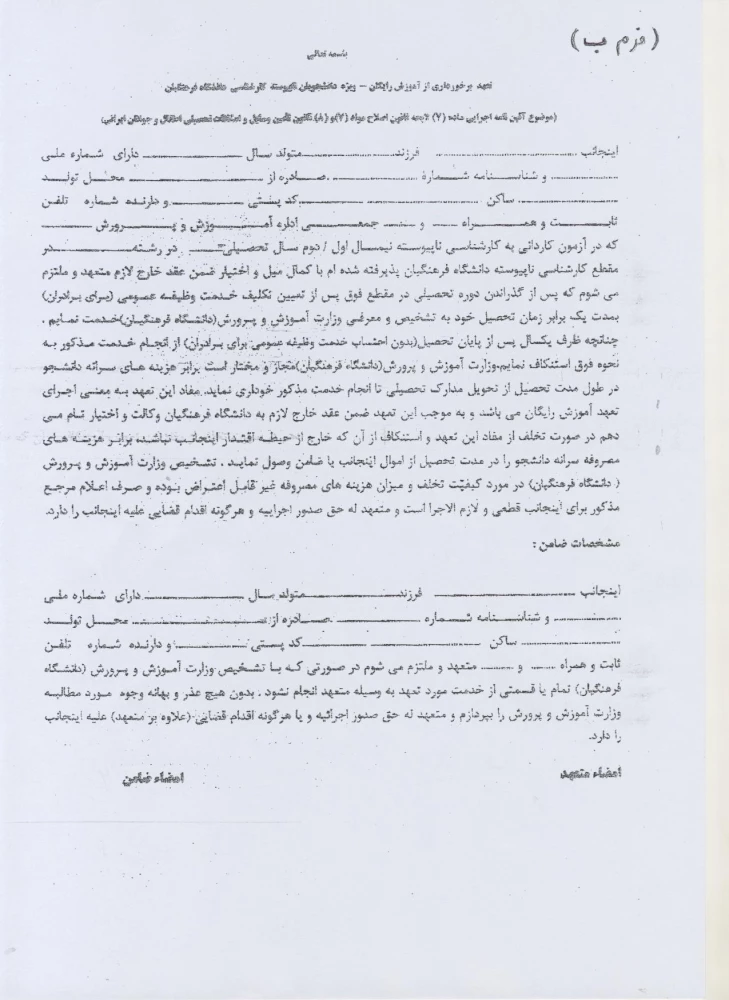 (فرم ب)
باسمه تعالی
تعهد برخورداری از آموزش رایگان - ویژه دانشجویان ناپیوسته کارشناسی دانشگاه فرهنگیان
(موضوع آئین نامه اجرایی ماده (۷) لایحه قانون اصلاح مواد (۷)و (۸) قانون تأمین وسایل و امکانات تحصیلی اطفال و جوانان ایرانی)
اینجانب ........ فرزند ........ متولد سال ........ دارای شماره ملی
........ و شناسنامه شماره ........ صادره از ........ محل تولد
........ ساکن ........ کد پستی ........ و دارنده شماره تلفن
ثابت و همراه ........ و ........ جمعی اداره آموزش و پرورش ........
که در آزمون کاردانی به کارشناسی ناپیوسته نیمسال اول / دوم سال تحصیلی ........ در رشته ........ در
مقطع کارشناسی ناپیوسته دانشگاه فرهنگیان پذیرفته شده ام با کمال میل و اختیار ضمن عقد خارج لازم متعهد و ملتزم
می شوم که پس از گذراندن دوره تحصیلی در مقطع فوق پس از تعیین تکلیف خدمت وظیفه عمومی (برای برادران)
بمدت یک برابر زمان تحصیل خود به تشخیص و معرفی وزارت آموزش و پرورش(دانشگاه فرهنگیان)خدمت نمایم .
چنانچه ظرف یکسال پس از پایان تحصیل(بدون احتساب خدمت وظیفه عمومی برای برادران) از انجام خدمت مذکور به
نحوه فوق استنکاف نمایم.وزارت آموزش و پرورش(دانشگاه فرهنگیان)مجاز و مختار است برابر هزینه های سرانه دانشجو
در طول مدت تحصیل از تحویل مدارک تحصیلی تا انجام خدمت مذکور خوداری نماید. مفاد این تعهد به معنی اجرای
تعهد آموزش رایگان می باشد و به موجب این تعهد ضمن عقد خارج لازم به دانشگاه فرهنگیان وکالت و اختیار تام می
دهم در صورت تخلف از مفاد این تعهد و استنکاف از آن که خارج از حیطه اقتدار اینجانب نباشد، برابر هزینه های
مصروفه سرانه دانشجو را در مدت تحصیل از اموال اینجانب یا ضامن وصول نماید . تشخیص وزارت آموزش و پرورش
( دانشگاه فرهنگیان) در مورد کیفیت تخلف و میزان هزینه های مصروفه غیر قابل اعتراض بوده و صرف اعلام مرجع
مذکور برای اینجانب قطعی و لازم الاجرا است و متعهد له حق صدور اجراییه و هرگونه اقدام قضایی علیه اینجانب را دارد.
مشخصات ضامن :
اینجانب ........ فرزند ........ متولد سال ........ دارای شماره ملی
........ و شناسنامه شماره ........ صادره از ........ محل تولد
........ ساکن ........ کد پستی ........ و دارنده شماره تلفن
ثابت و همراه ........ و ........ متعهد و ملتزم می شوم در صورتی که با تشخیص وزارت آموزش و پرورش (دانشگاه
فرهنگیان) تمام یا قسمتی از خدمت مورد تعهد به وسیله متعهد انجام نشود . بدون هیچ عذر و بهانه وجوه مورد مطالبه
وزارت آموزش و پرورش را بپردازم و متعهد له حق صدور اجرائیه و یا هرگونه اقدام قضایی (علاوه بر متعهد) علیه اینجانب
را دارد.
امضاء متعهد امضاء ضامن